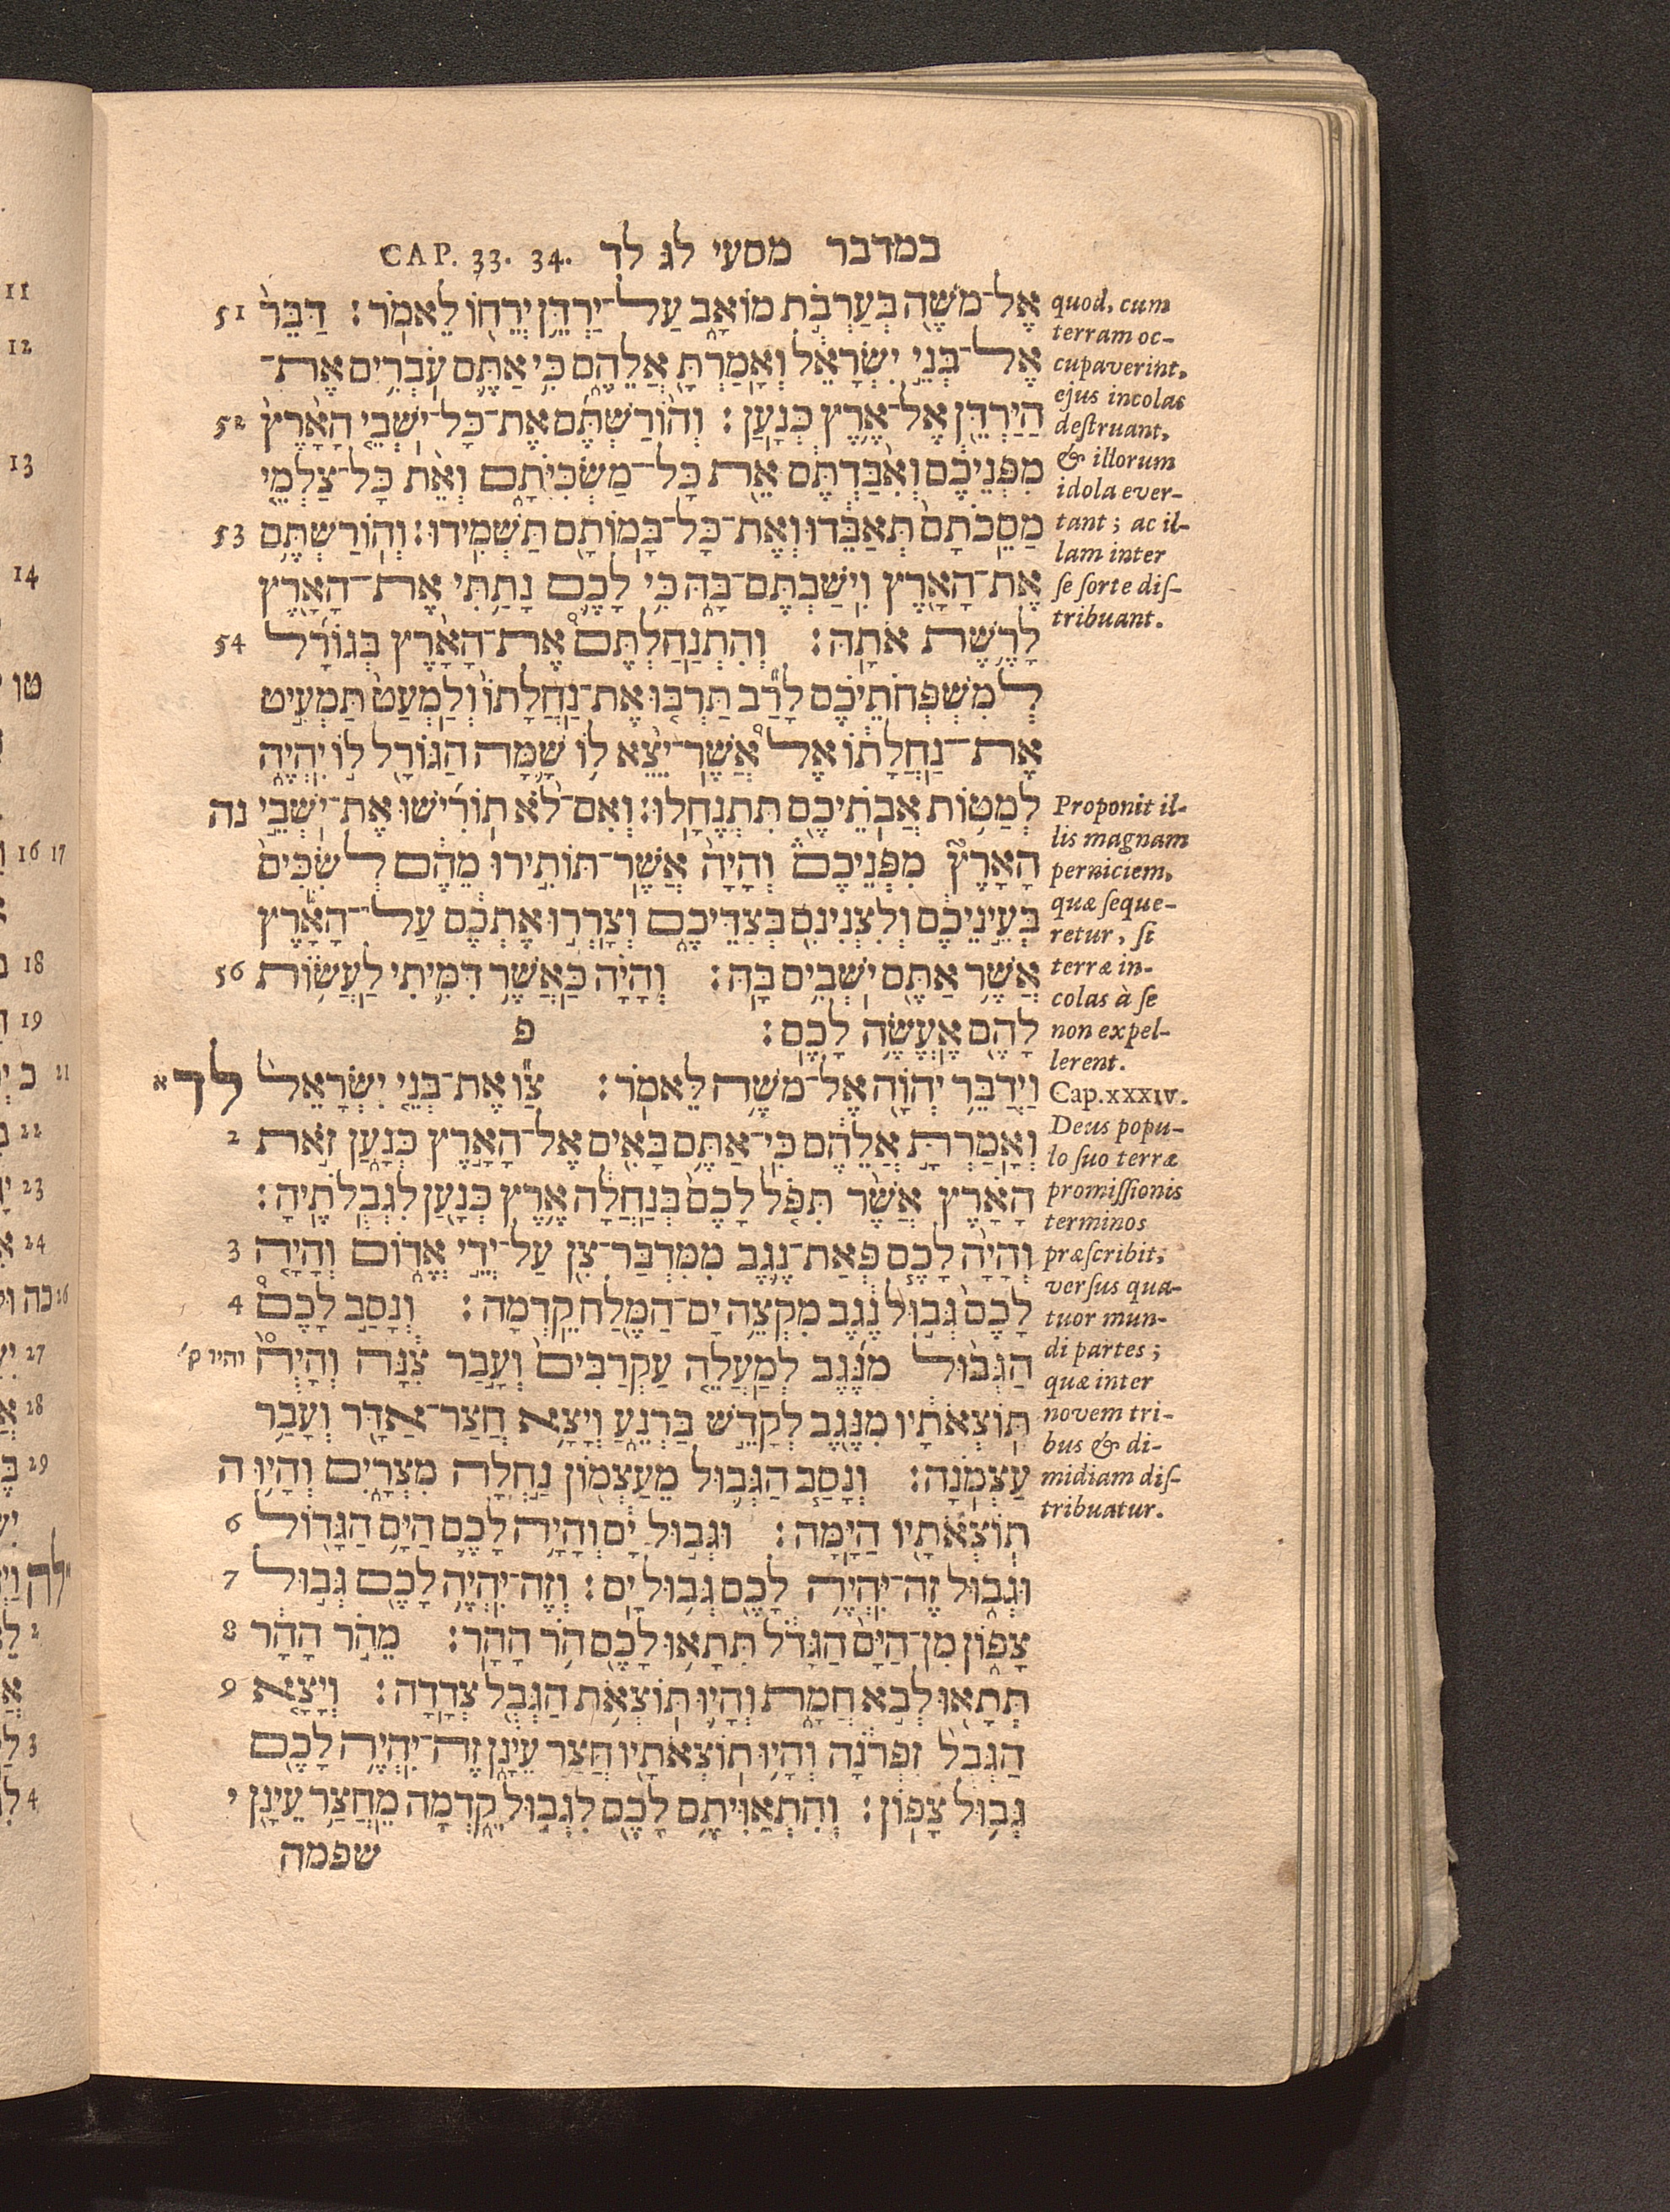 במדבר מסעי לג לד CAP. 33. 34.
אֶל־מֹשֶׁה בְּעַרְבֹת מוֹאָב עַל־יַרְדֵּן יְרֵחוֹ לֵאמֹר׃ דַּבֵּר 51
אֶל־בְּנֵי יִשְׂרָאֵל וְאָמַרְתָּ אֲלֵהֶם כִּי אַתֶּם עֹבְרִים אֶת־
הַיַּרְדֵּן אֶל־אֶרֶץ כְּנָעַן׃ וְהוֹרַשְׁתֶּם אֶת־כָּל־יֹשְׁבֵי הָאָרֶץ 52
מִפְּנֵיכֶם וְאִבַּדְתֶּם אֵת כָּל־מַשְׂכִּיֹּתָם וְאֵת כָּל־צַלְמֵי
מַסֵּכֹתָם תְּאַבֵּדוּ וְאֶת־כָּל־בָּמוֹתָם תַּשְׁמִידוּ׃ וְהוֹרַשְׁתֶּם 53
אֶת־הָאָרֶץ וִישַׁבְתֶּם־בָּהּ כִּי לָכֶם נָתַתִּי אֶת־הָאָרֶץ
לָרֶשֶׁת אֹתָהּ׃ וְהִתְנַחַלְתֶּם אֶת־הָאָרֶץ בְּגוֹרָל 54
לְמִשְׁפְּחֹתֵיכֶם לָרַב תַּרְבּוּ אֶת־נַחֲלָתוֹ וְלַמְעַט תַּמְעִיט
אֶת־נַחֲלָתוֹ אֶל אֲשֶׁר־יֵצֵא לוֹ שָׁמָּה הַגּוֹרָל לוֹ יִהְיֶה
לְמַטּוֹת אֲבֹתֵיכֶם תִּתְנֶחָלוּ׃ וְאִם־לֹא תוֹרִישׁוּ אֶת־יֹשְׁבֵי נה
הָאָרֶץ מִפְּנֵיכֶם וְהָיָה אֲשֶׁר־תּוֹתִירוּ מֵהֶם לְשִׂכִּים
בְּעֵינֵיכֶם וְלִצְנִינִם בְּצִדֵּיכֶם וְצָרְרוּ אֶתְכֶם עַל־הָאָרֶץ
אֲשֶׁר אַתֶּם יֹשְׁבִים בָּהּ׃ וְהָיָה כַּאֲשֶׁר דִּמִּיתִי לַעֲשׂוֹת 56
לָהֶם אֶעֱשֶׂה לָכֶם׃ פ
וַיְדַבֵּר יְהוָה אֶל־מֹשֶׁה לֵּאמֹר׃ צַו אֶת־בְּנֵי יִשְׂרָאֵל לד א
וְאָמַרְתָּ אֲלֵהֶם כִּי־אַתֶּם בָּאִים אֶל־הָאָרֶץ כְּנָעַן זֹאת 2
הָאָרֶץ אֲשֶׁר תִּפֹּל לָכֶם בְּנַחֲלָה אֶרֶץ כְּנַעַן לִגְבֻלֹתֶיהָ׃
וְהָיָה לָכֶם פְּאַת־נֶגֶב מִמִּדְבַּר־צִן עַל־יְדֵי אֱדוֹם וְהָיָה 3
לָכֶם גְּבוּל נֶגֶב מִקְצֵה יָם־הַמֶּלַח קֵדְמָה׃ וְנָסַב לָכֶם 4
הַגְּבוּל מִנֶּגֶב לְמַעֲלֵה עַקְרַבִּים וְעָבַר צִנָה וְהָיָה והיו ק׳
תּוֹצְאֹתָיו מִנֶּגֶב לְקָדֵשׁ בַּרְנֵעַ וְיָצָא חֲצַר־אַדָּר וְעָבַר
עַצְמֹנָה׃ וְנָסַב הַגְּבוּל מֵעַצְמוֹן נַחְלָה מִצְרָיִם וְהָיוּ ה
תוֹצְאֹתָיו הַיָּמָּה׃ וּגְבוּל יָם וְהָיָה לָכֶם הַיָּם הַגָּדוֹל 6
וּגְבוּל זֶה־יִהְיֶה לָכֶם גְּבוּל יָם׃ וְזֶה־יִהְיֶה לָכֶם גְּבוּל 7
צָפוֹן מִן־הַיָּם הַגָּדֹל תְּתָאוּ לָכֶם הֹר הָהָר׃ מֵהֹר הָהָר 8
תְּתָאוּ לְבֹא חֲמָת וְהָיוּ תּוֹצְאֹת הַגְּבֻל צְדָדָה׃ וְיָצָא 9
הַגְּבֻל זִפְרֹנָה וְהָיוּ תוֹצְאֹתָיו חֲצַר עֵינָן זֶה־יִהְיֶה לָכֶם
גְּבוּל צָפוֹן׃ וְהִתְאַוִּיתֶם לָכֶם לִגְבוּל קֵדְמָה מֵחֲצַר עֵינָן י
שפמה
quod, cum
terram oc-
cupaverint,
ejus incolas
destruant,
& illorum
idola ever-
tant; ac il-
lam inter
se sorte dis-
tribuant.
Proponit il-
lis magnam
perniciem,
quæ seque-
retur, si
terræ in-
colas à se
non expel-
lerent.
Cap. XXXIV.
Deus popu-
lo suo terræ
promissionis
terminos
præscribit,
versus qua-
tuor mun-
di partes;
quæ inter
novem tri-
bus & di-
midiam dis-
tribuatur.
11
12
13
14
טו
16 17
18
19
21
22
23
24
26
27
28
29
לה
2
3
4